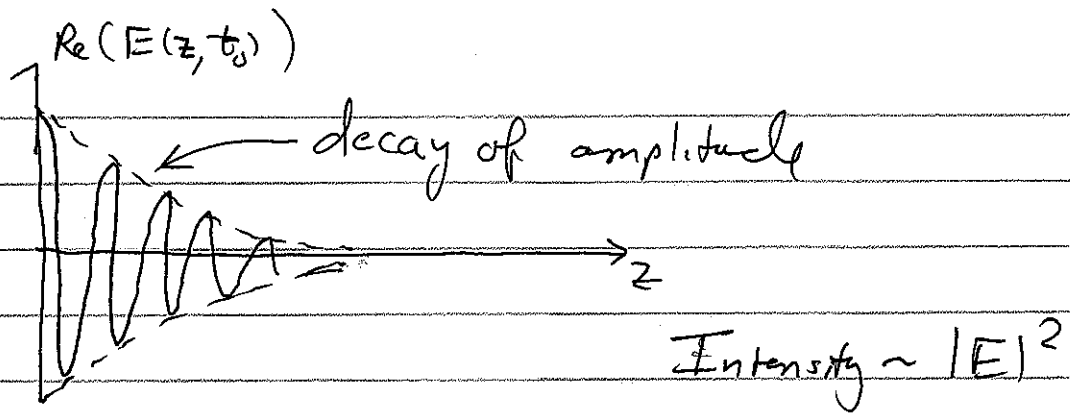 Re(E(z,t₀))
decay of amplitude
z
Intensity ~ |E|²